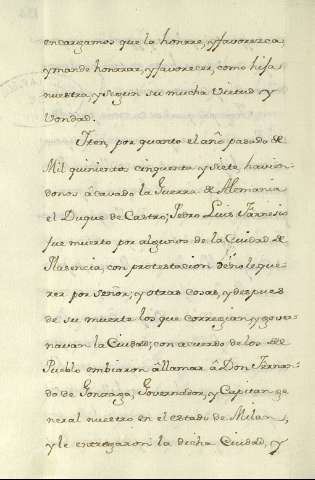 encargamos que la honrre, y favorezca,
y mande honrrar, y favorecer, como hija
nuestra, y segun su mucha virtud y
vondad.
Iten, por quanto el año pasado de
Mil quinientos cinquenta y siete, havien-
donos acavado la Guerra de Alemania
el Duque de Castro, Pedro Luis Farnesio
fue muerto por algunos de la Ciudad de
Plasencia, con protestacion de no le que-
rer por señor, y otras cosas, y despues
de su muerte los que corregian y gover-
navan la Ciudad, con acuerdo de los de
Pueblo embiaron a llamar à Don Fernan-
do de Gonzaga, Governador, y Capitan ge-
neral nuestro en el estado de Milan,
y le entregaron la dicha Ciudad, y